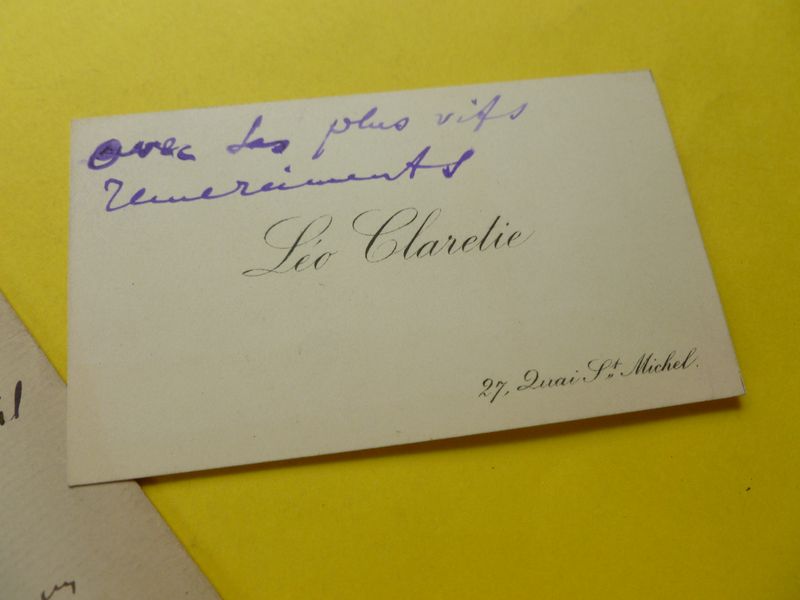 avec ses plus vifs
remerciements
Léo Claretie
27, Quai St Michel.